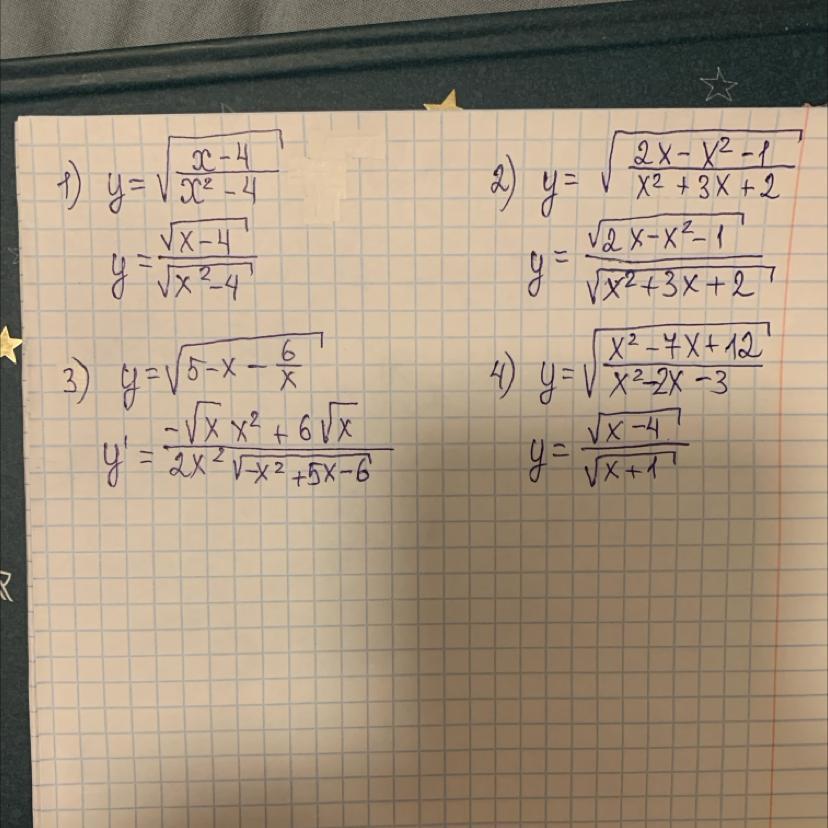 1) y = √((x - 4)/(x² - 4))
y = √(x - 4)/√(x² - 4)
2) y = √((2x - x² - 1)/(x² + 3x + 2))
y = √(2x - x² - 1)/√(x² + 3x + 2)
3) y = √(5 - x - 6/x)
y' = (-√x x² + 6√x)/(2x² √(-x² + 5x - 6))
4) y = √((x² - 7x + 12)/(x² - 2x - 3))
y = √(x - 4)/√(x + 1)